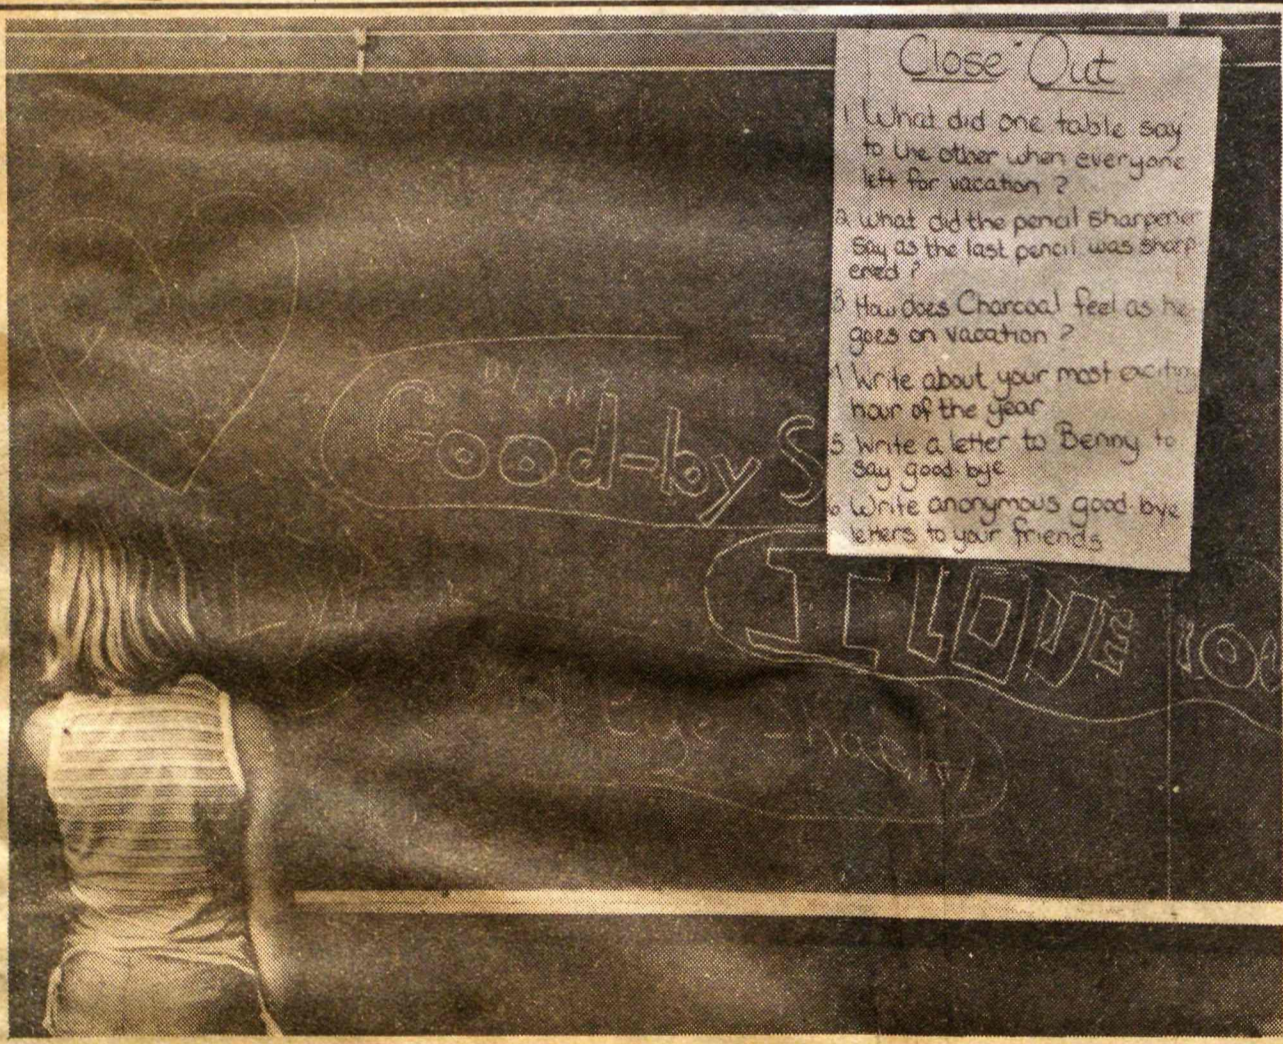 Close Out
1 What did one table say
to the other when everyone
left for vacation ?
2 What did the pencil sharpener
say as the last pencil was sharp
ened ?
3 How does Charcoal feel as he
goes on vacation ?
4 Write about your most exciting
hour of the year
5 Write a letter to Benny to
say good bye
6 Write anonymous good-bye
letters to your friends
Good-by S
I LOVE YOU